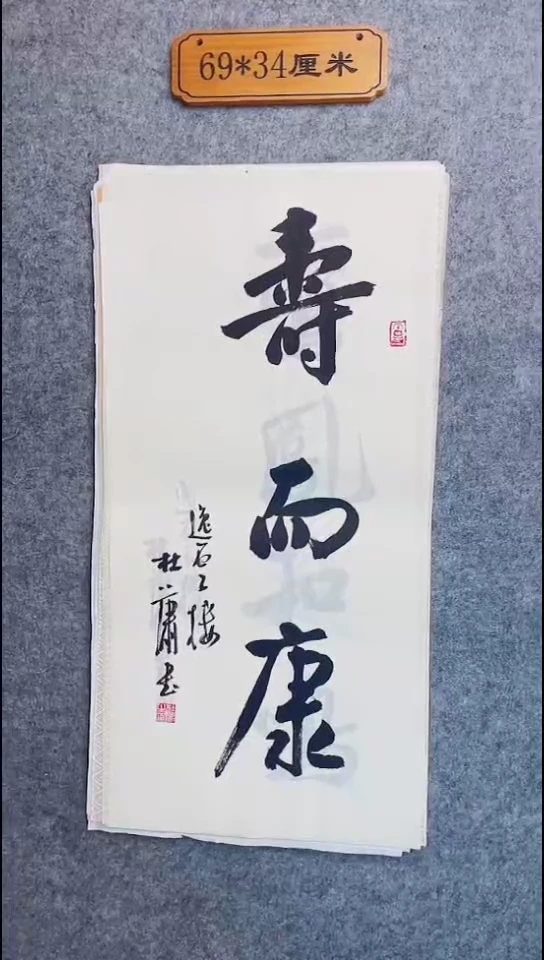 69*34厘米
壽而康
逸石山楼
杜蕭书